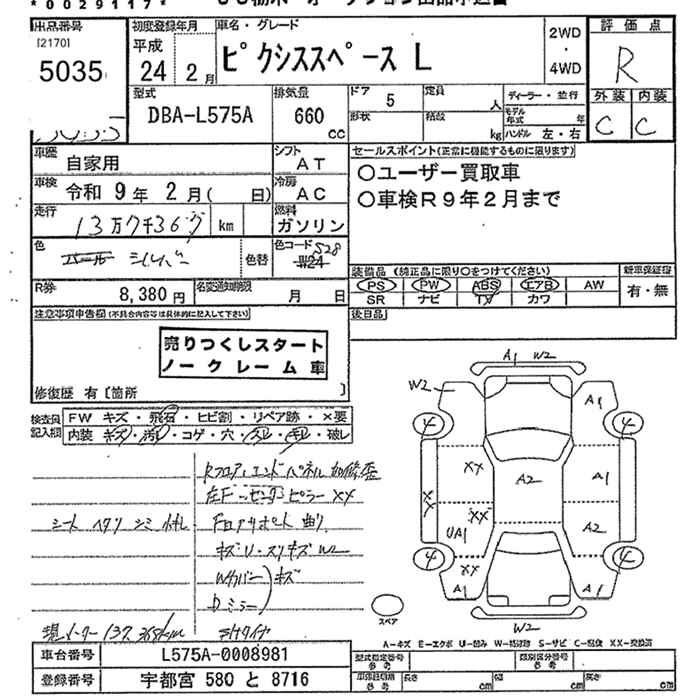 *0029117*
出品番号
[2170]
5035
初度登録年月
平成
24年 2月
車名・グレード
ピクシススペース L
2WD
・
4WD
評価点
R
外装 内装
C C
型式
DBA-L575A
排気量
660
cc
ドア 5
定員 人
形状
格納 kg
ディーラー・並行
モデル年式 年
ハンドル 左・右
車歴 自家用
シフト AT
車検 令和 9年 2月( 日)
冷房 AC
走行 km
燃料 ガソリン
色 シルバー 色替
色コード S28
R券 8,380円
名変通知期限 月 日
セールスポイント(正常に機能するものに限ります)
○ユーザー買取車
○車検R9年2月まで
装備品 (純正品に限り○をつけてください)
PS PW ABS エアB AW
SR ナビ TV カワ
新車保証書
有・無
後日品
注意事項申告欄(不具合内容等は具体的に記入して下さい)
売りつくしスタート
ノークレーム車
修復歴 有[箇所 ]
検査員記入欄
FW キズ・飛石・ヒビ割・リペア跡・×要
内装 キズ・汚れ・コゲ・穴・スレ・キレ・破レ
Rフロア、エンドパネル 加修歪
左F〜センターピラー XX
シート ヘタリ シミ
キズU・スリキズW2
Wカバー キズ
Dミラー
現メーター 137,368km
A1 W2
W2
A1
4 4
XX A2 A1
XX
UA1 XX A2
4 4
XX
A1 A1
W2
スペア
A-キズ E-エクボ U-凹み W-補修跡 S-サビ C-腐蝕 XX-交換済
車台番号 L575A-0008981
登録番号 宇都宮 580 と 8716
型式指定番号 参考
類別区分番号 参考
長さ cm 幅 cm 高さ cm